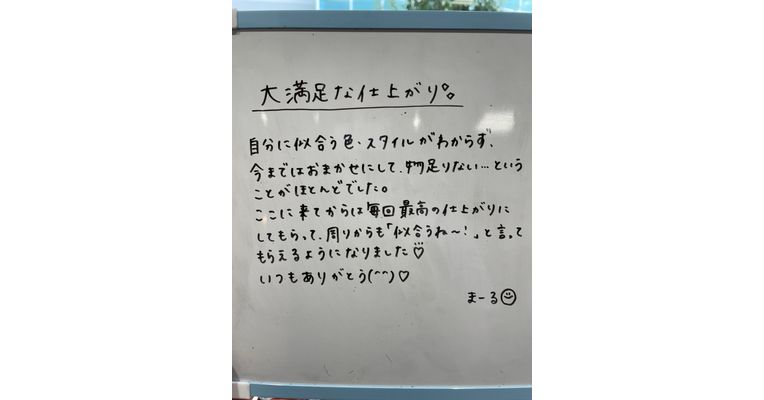 大満足な仕上がり
自分に似合う色・スタイルがわからず、
今まではおまかせにして、物足りない…という
ことがほとんどでした。
ここに来てからは毎回最高の仕上がりに
してもらって、周りからも「似合うね〜!」と言って
もらえるようになりました♡
いつもありがとう(^^)♡
まーる☺